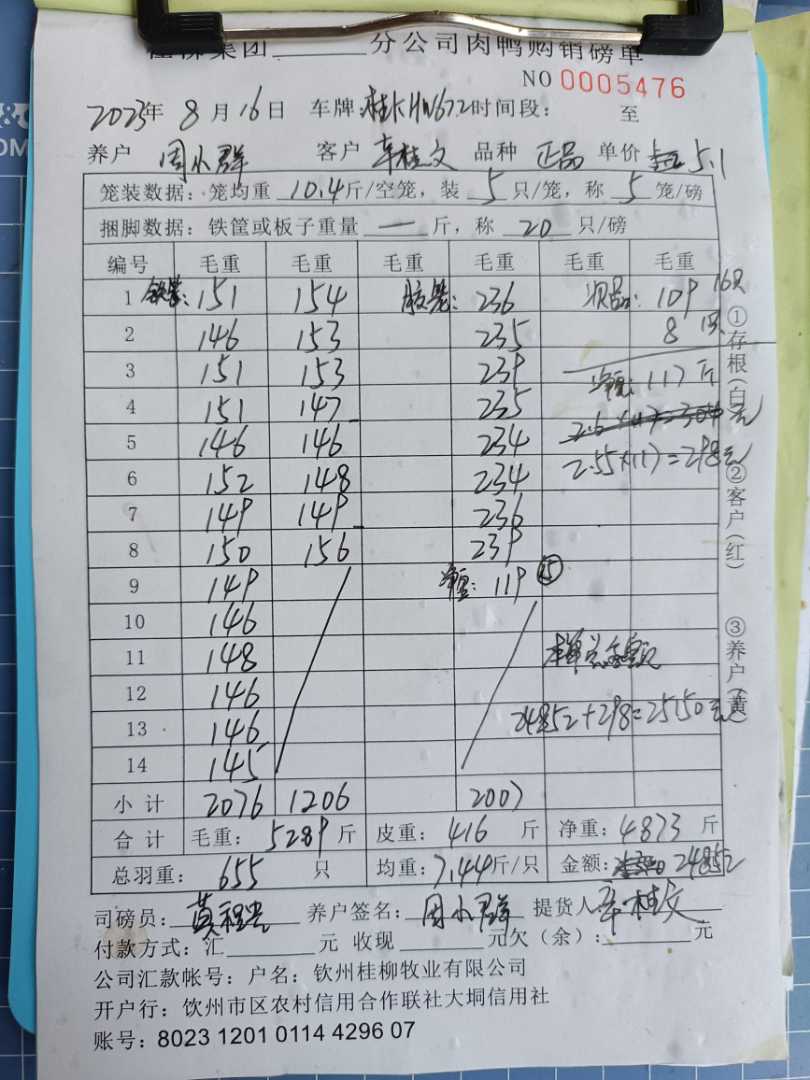 分公司肉鸭购销磅单
NO 0005476
2023年 8月16日 车牌:桂KHW672时间段: 至
养户 周小群 客户 车桂文 品种 正品 单价 5.1
笼装数据:笼均重 10.4斤/空笼,装 5 只/笼,称 5 笼/磅
捆脚数据:铁筐或板子重量 — 斤,称 20 只/磅
编号 毛重 毛重 毛重 毛重 毛重 毛重
1 铁笼:151 154 胶笼:236 次品:109 16只
2 146 153 235 8 1只
3 151 153 239 净重:117斤
4 151 147 235
5 146 146 234 2.55×117=298元
6 152 148 234
7 149 149 236
8 150 156 239
9 149 净重:119 ⑮
10 146
11 148 本单总金额
12 146
13 146 24852+298=25150元
14 145
小计 2076 1206 2007
合计 毛重: 5289斤 皮重: 416 斤 净重:4873斤
总羽重: 655 只 均重:7.44斤/只 金额: 24852
①存根(白)②客户(红)③养户(黄)
司磅员: 养户签名:周小群 提货人车桂文
付款方式:汇 元 收现 元欠(余): 元
公司汇款帐号:户名:钦州桂柳牧业有限公司
开户行:钦州市区农村信用合作联社大垌信用社
账号:8023 1201 0114 4296 07